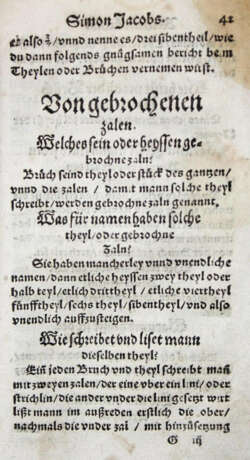 Simon Jacobs. 42
er also ⅔/vnnd nenne es/drei sibentheil/wie
du dann folgends gnůgsamen bericht beim
Theylen oder Brüchen vernemen würst.
Von gebrochenen
zalen.
Welches sein oder heyssen ge-
brochne zaln?
Brüch seind theyl oder stück des gantzen/
vnnd die zalen / damit mann solche theyl
schreibt/werden gebrochne zaln genannt.
Was für namen haben solche
theyl/oder gebrochne
Zaln?
Sie haben mancherley vnnd vnendliche
namen/dann etliche heyssen zwey theyl oder
halb teyl/etlich drittheyl / etliche viertheyl
fünfftheyl/sechs theyl/sibentheyl/vnd also
vnendlich auffzusteigen.
Wie schreibet vnd liset mann
dieselben theyl?
Ein jeden Bruch vnd theyl schreibt man
mit zweyen zalen/der eine vber ein lini/oder
strichlin/die ander vnder die lini gesetzt wirt
lißt mann im außreden erstlich die ober/
nachmals die vnder zal / mit hinzůsetzung
G iij